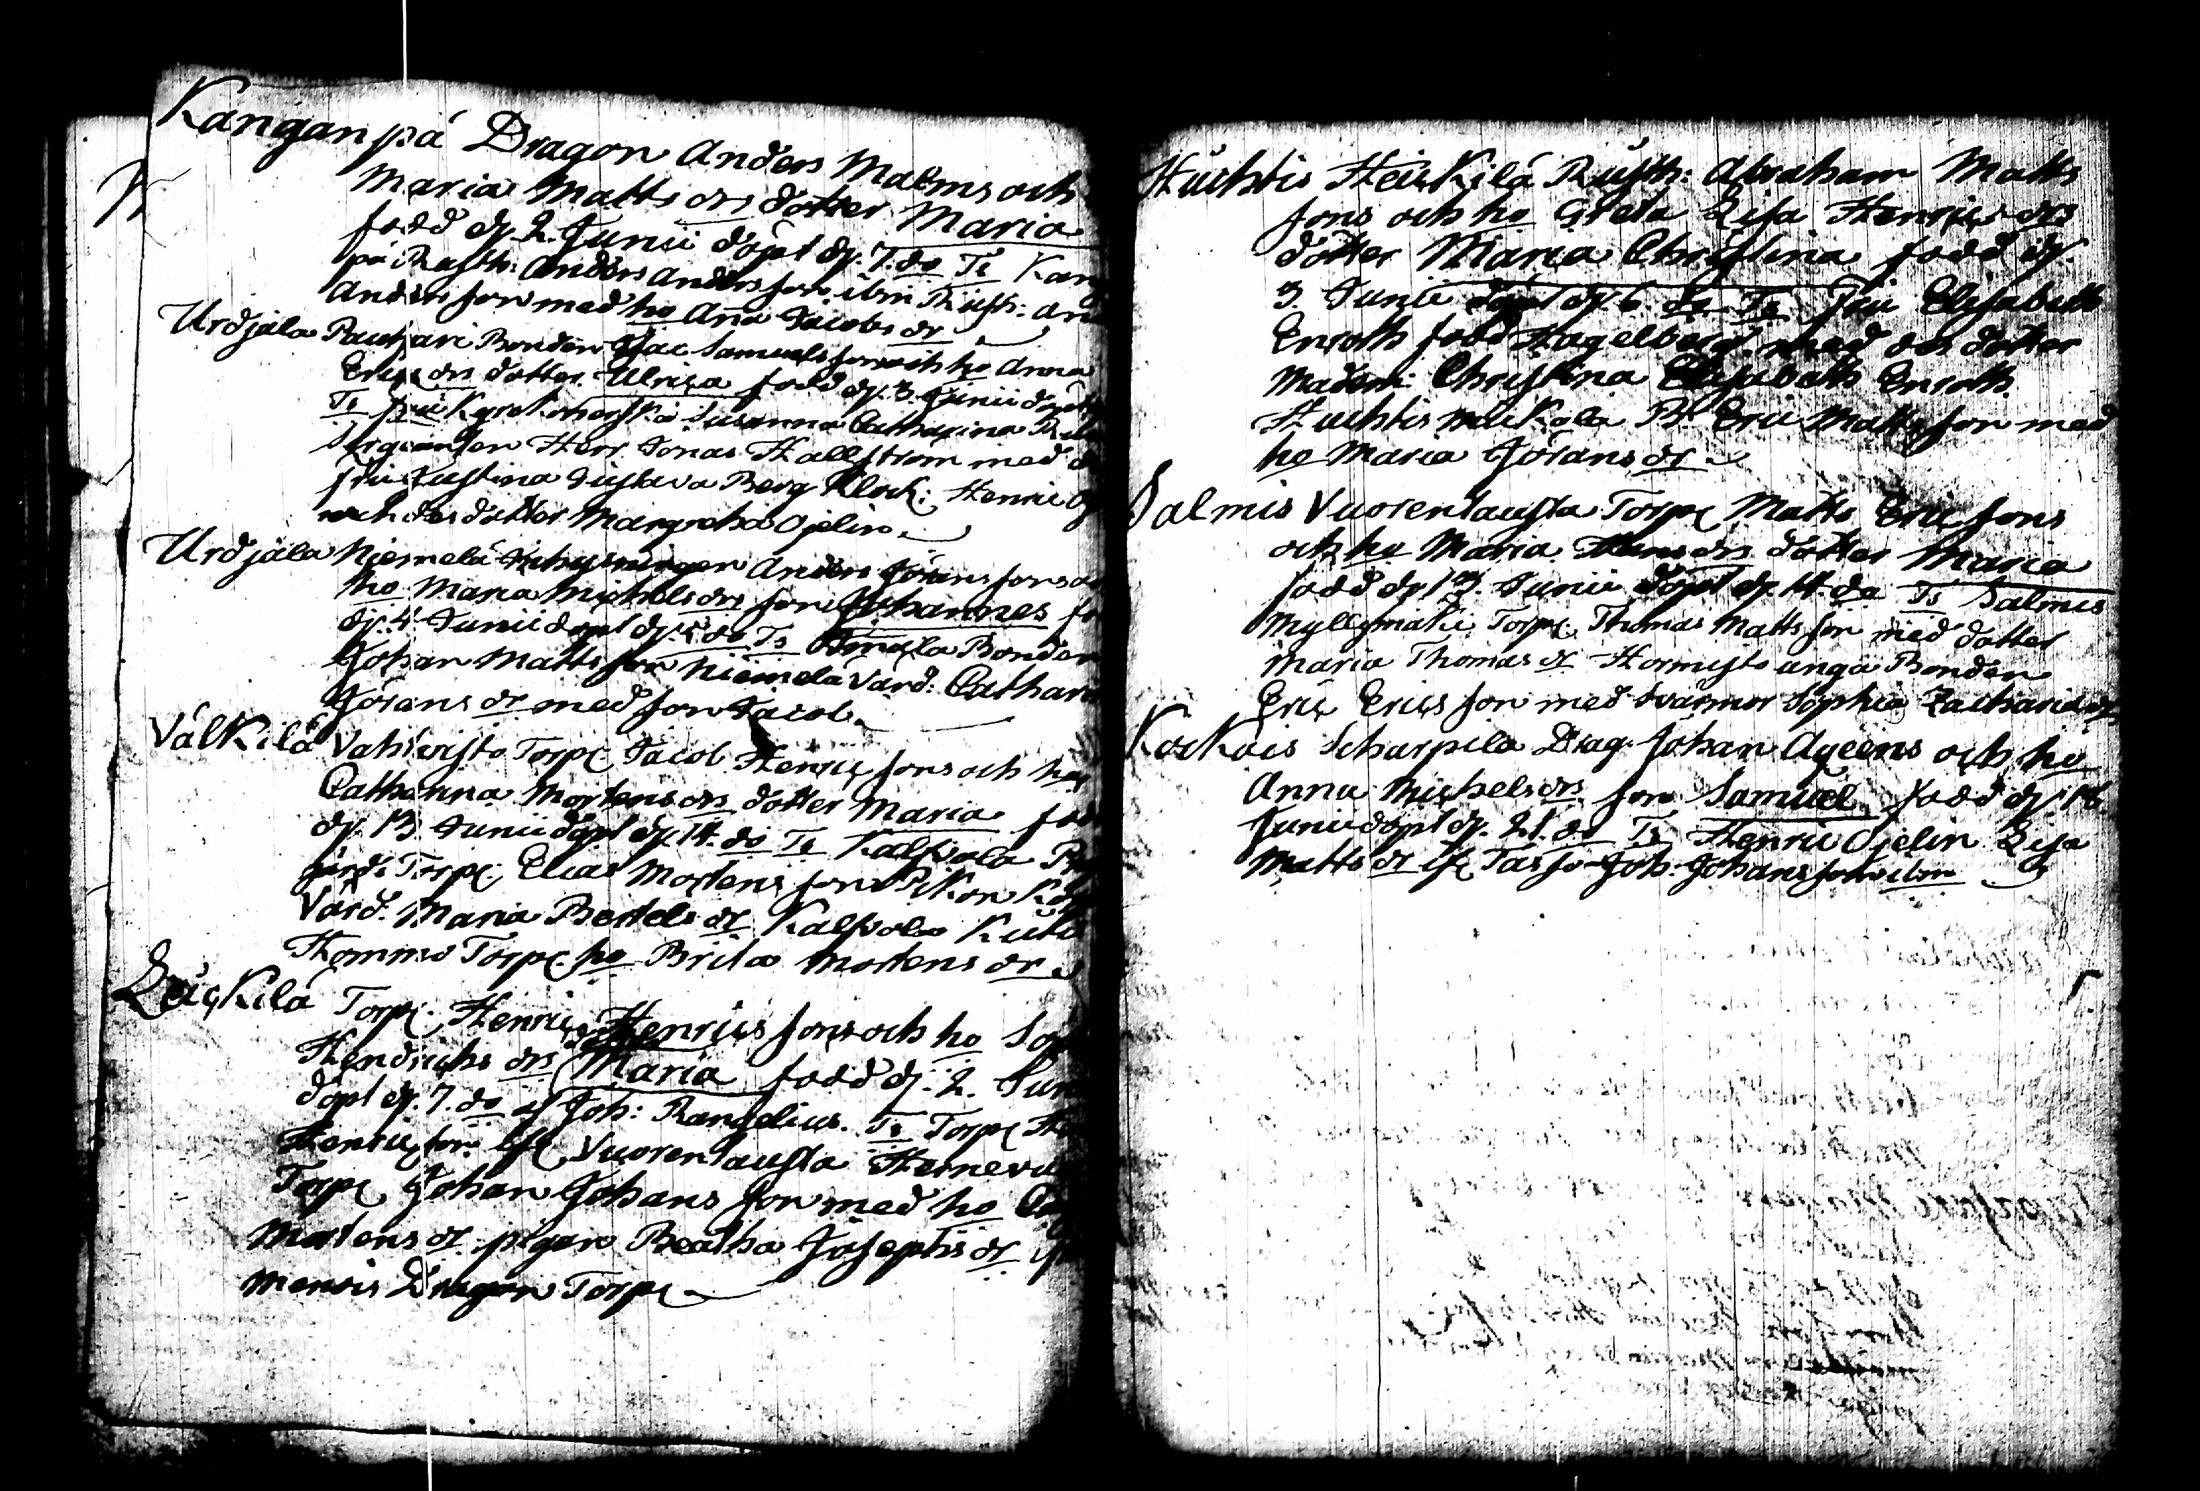 Kangan på Dragon Anders Malms och
Maria Matts drs dotter Maria
född dj. 2. Junii döpt dj. 7. do Ts Kang
på Rusth: Anders Anders son ibm Rusth: And
Anders son med ho Ana Jacobs dr
Urdjala Pauhari Bonden Isac Samuels sons och ho Anna
Erics drs dotter Ulrica född dj. 3. Junii döpt
Ts fru Kyrckoherskå Susanna Catharina
Sergeanten Herr Jonas Hallström med
fru Justina Gustava Berg Klock: Henric
och des dotter Margretha Ojelin
Urdjala Niemelä Inhysningen Anders Görans sons
ho Maria Michels drs son Johannes
dj. 4 Junii döpt dj. 5 do Ts Bonden
Johan Matts son Niemelä Värd: Cathari
Görans dr med son Jacob
Välkilä Torpc Jacob Henrics sons och hu
Catharina Mortens drs dotter Maria föd
dj. 13 Junii döpt dj. 14. do Ts Kalfvola
gärds Torpc Elias Mortens son
Värd. Maria Bertels dr Kalfvola
Hommo Torpc ho Brita Mortens dr
Leuckilä Torpc. Henric Henrics sons och ho Sop
Hendrichs drs Maria född dj. 2. Jun
döpt dj. 7. do af Joh: Rangelius. Ts Torpc
Henrics son Vuorentausta
Torpc Johan Johans son med ho
Mortens dr pigan Beatha Josephs dr
Mensis Dragon Torpc
Huhtis Heickilä Rusth: Abraham Matts
sons och ho Greta Lisa Henrics drs
dotter Maria Christina född dj.
3. Junii döpt dj. 6. do Ts Fru Elisabeth
Enroth född Hagelberg med des dotter
Madem: Christina Elisabeth Enroth.
Huhtis Mickola B. Eric Matts son med
ho Maria Görans dr
Salmis Vuorentausta Torpc Matts Eric sons
och ho Maria Hans drs dotter Maria
född dj 13. Junii döpt dj. 14. do Ts Salmis
Myllymäki Torpc. Thomas Matts son med dotter
Maria Thomas dr Hormisto änga Bonden
Eric Erics son med Svärmor Sophia Zacharie dr
Kockois Scharpila Drag. Johan Ageens och ho
Anna Michels drs son Samuel född dj. 18
Junii döpt dj. 21. do Ts Henric Ojelin Lisa
Matts dr Tasso Joh. Johans son ibm